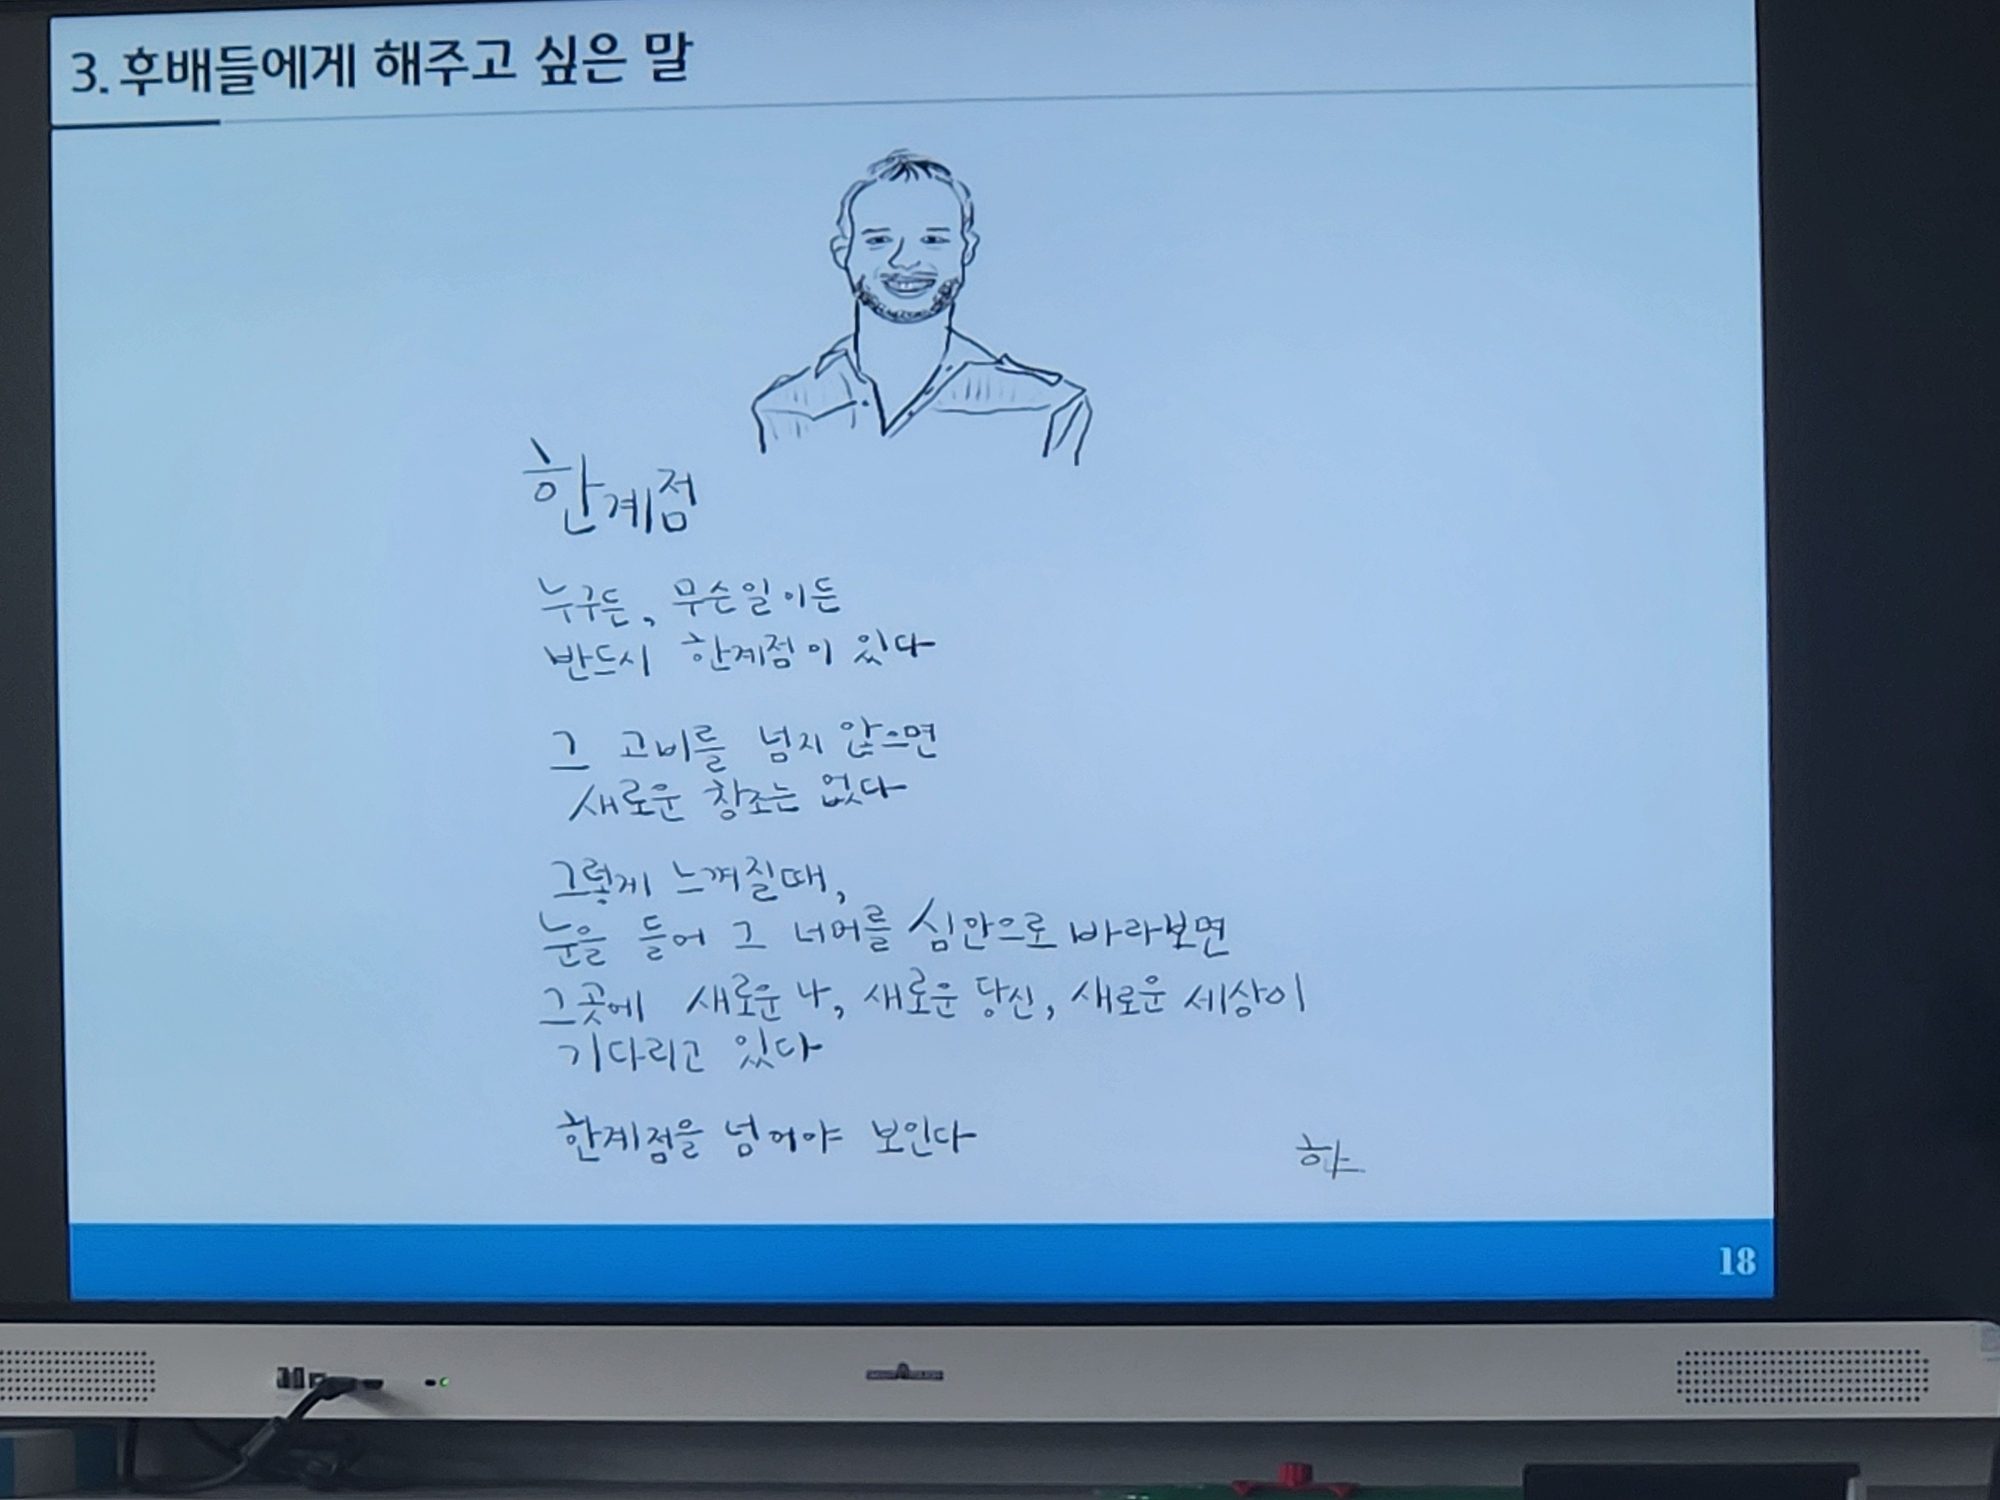 3. 후배들에게 해주고 싶은 말
한계점
누구든, 무슨일이든
반드시 한계점이 있다
그 고비를 넘지 않으면
새로운 창조는 없다
그렇게 느껴질때,
눈을 들어 그 너머를 심안으로 바라보면
그곳에 새로운 나, 새로운 당신, 새로운 세상이
기다리고 있다
한계점을 넘어야 보인다
18